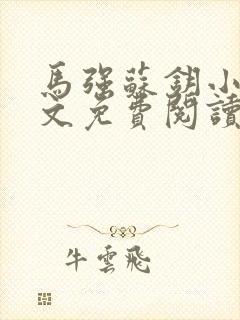 馬強蘇鈅小
文免費閱讀
牛雲飛